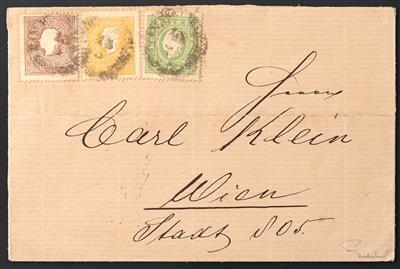 Herrn
Carl Klein
Wien
Stadt 805.